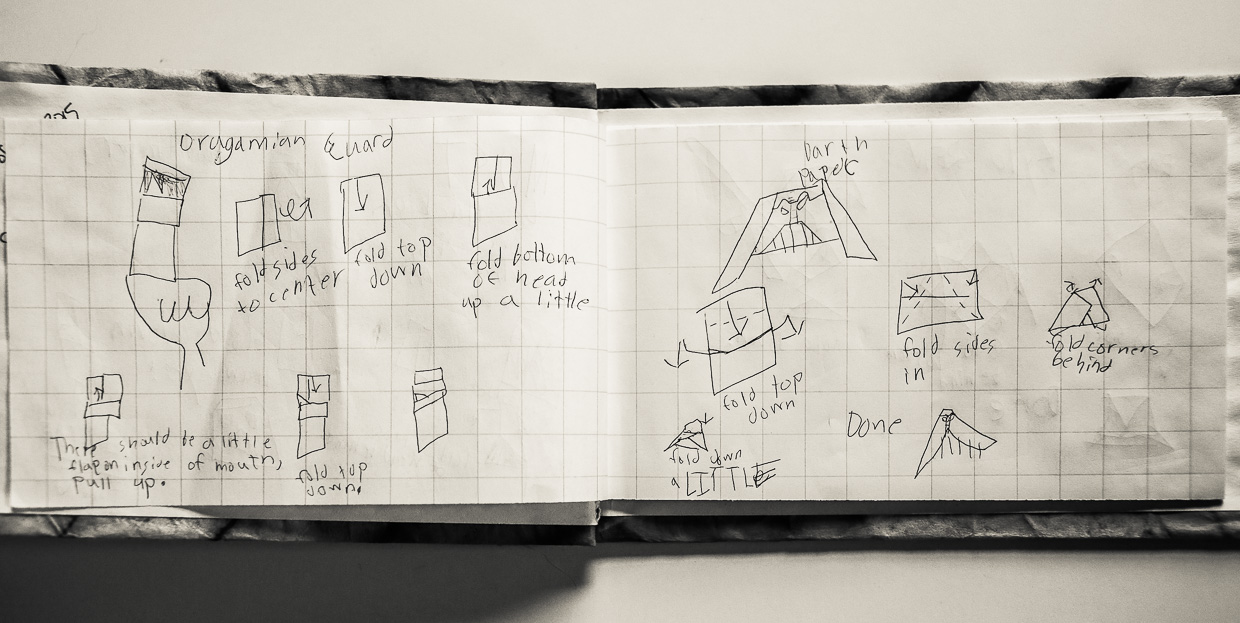 Orugamian Guard
fold sides
to center
fold top
down
fold bottom
of head
up a little
There should be a little
flap on inside of mouth,
pull up.
fold top
down.
Darth
Paper
fold top
down
fold sides
in
fold corners
behind
fold down
a LITTLE
Done